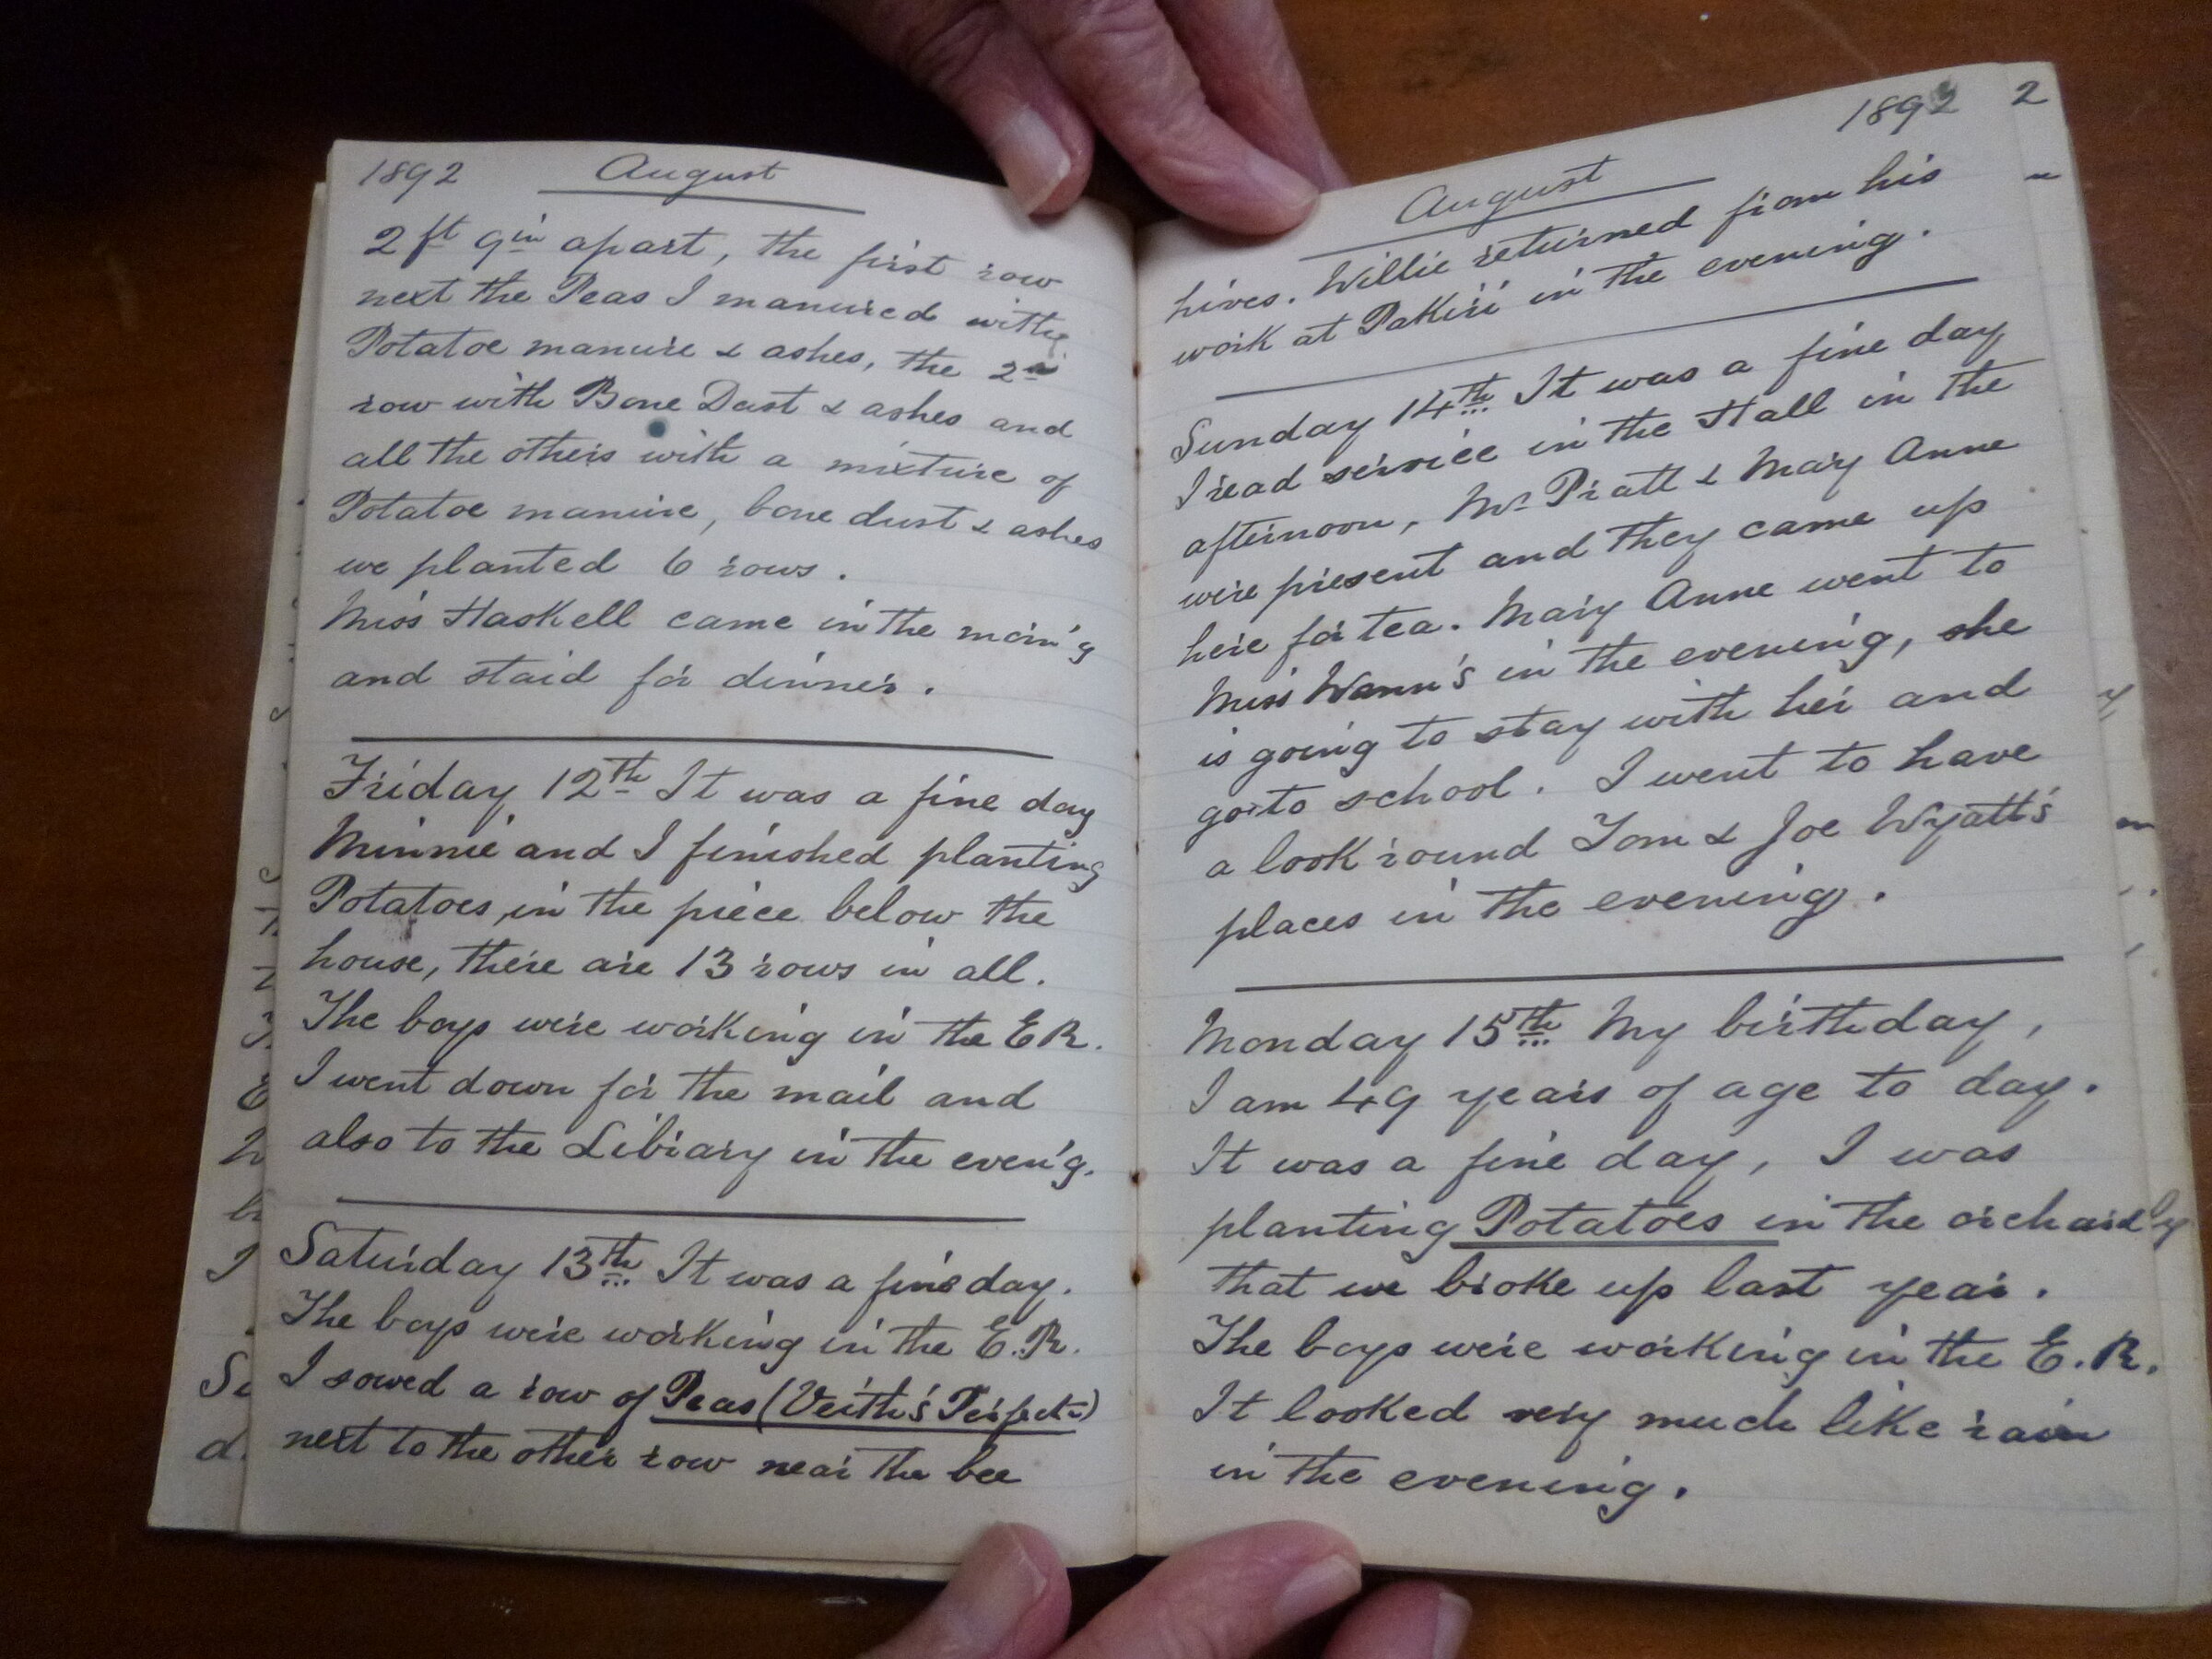 1892 August
2 ft 9 in apart, the first row
next the Peas I manured with
Potatoe manure & ashes, the 2nd
row with Bone Dust & ashes and
all the others with a mixture of
Potatoe manure, bone dust & ashes
we planted 6 rows.
Miss Haskell came in the morn'g
and staid for dinner.
Friday 12th It was a fine day
Minnie and I finished planting
Potatoes, in the piece below the
house, there are 13 rows in all.
The boys were working in the E R.
I went down for the mail and
also to the Library in the even'g.
Saturday 13th It was a fine day.
The boys were working in the E.R.
I sowed a row of Peas (Veith's Perfectn)
next to the other row near the bee
1892
August
hives. Willie returned from his
work at Pakiri in the evening.
Sunday 14th It was a fine day
I read service in the Hall in the
afternoon, Mr Pratt & Mary Anne
were present and they came up
here for tea. Mary Anne went to
Miss Wann's in the evening, she
is going to stay with her and
go to school. I went to have
a look round Tom & Joe Wyatt's
places in the evening.
Monday 15th My birthday,
I am 49 years of age to day.
It was a fine day, I was
planting Potatoes in the orchard
that we broke up last year.
The boys were working in the E.R.
It looked very much like rain
in the evening.
2